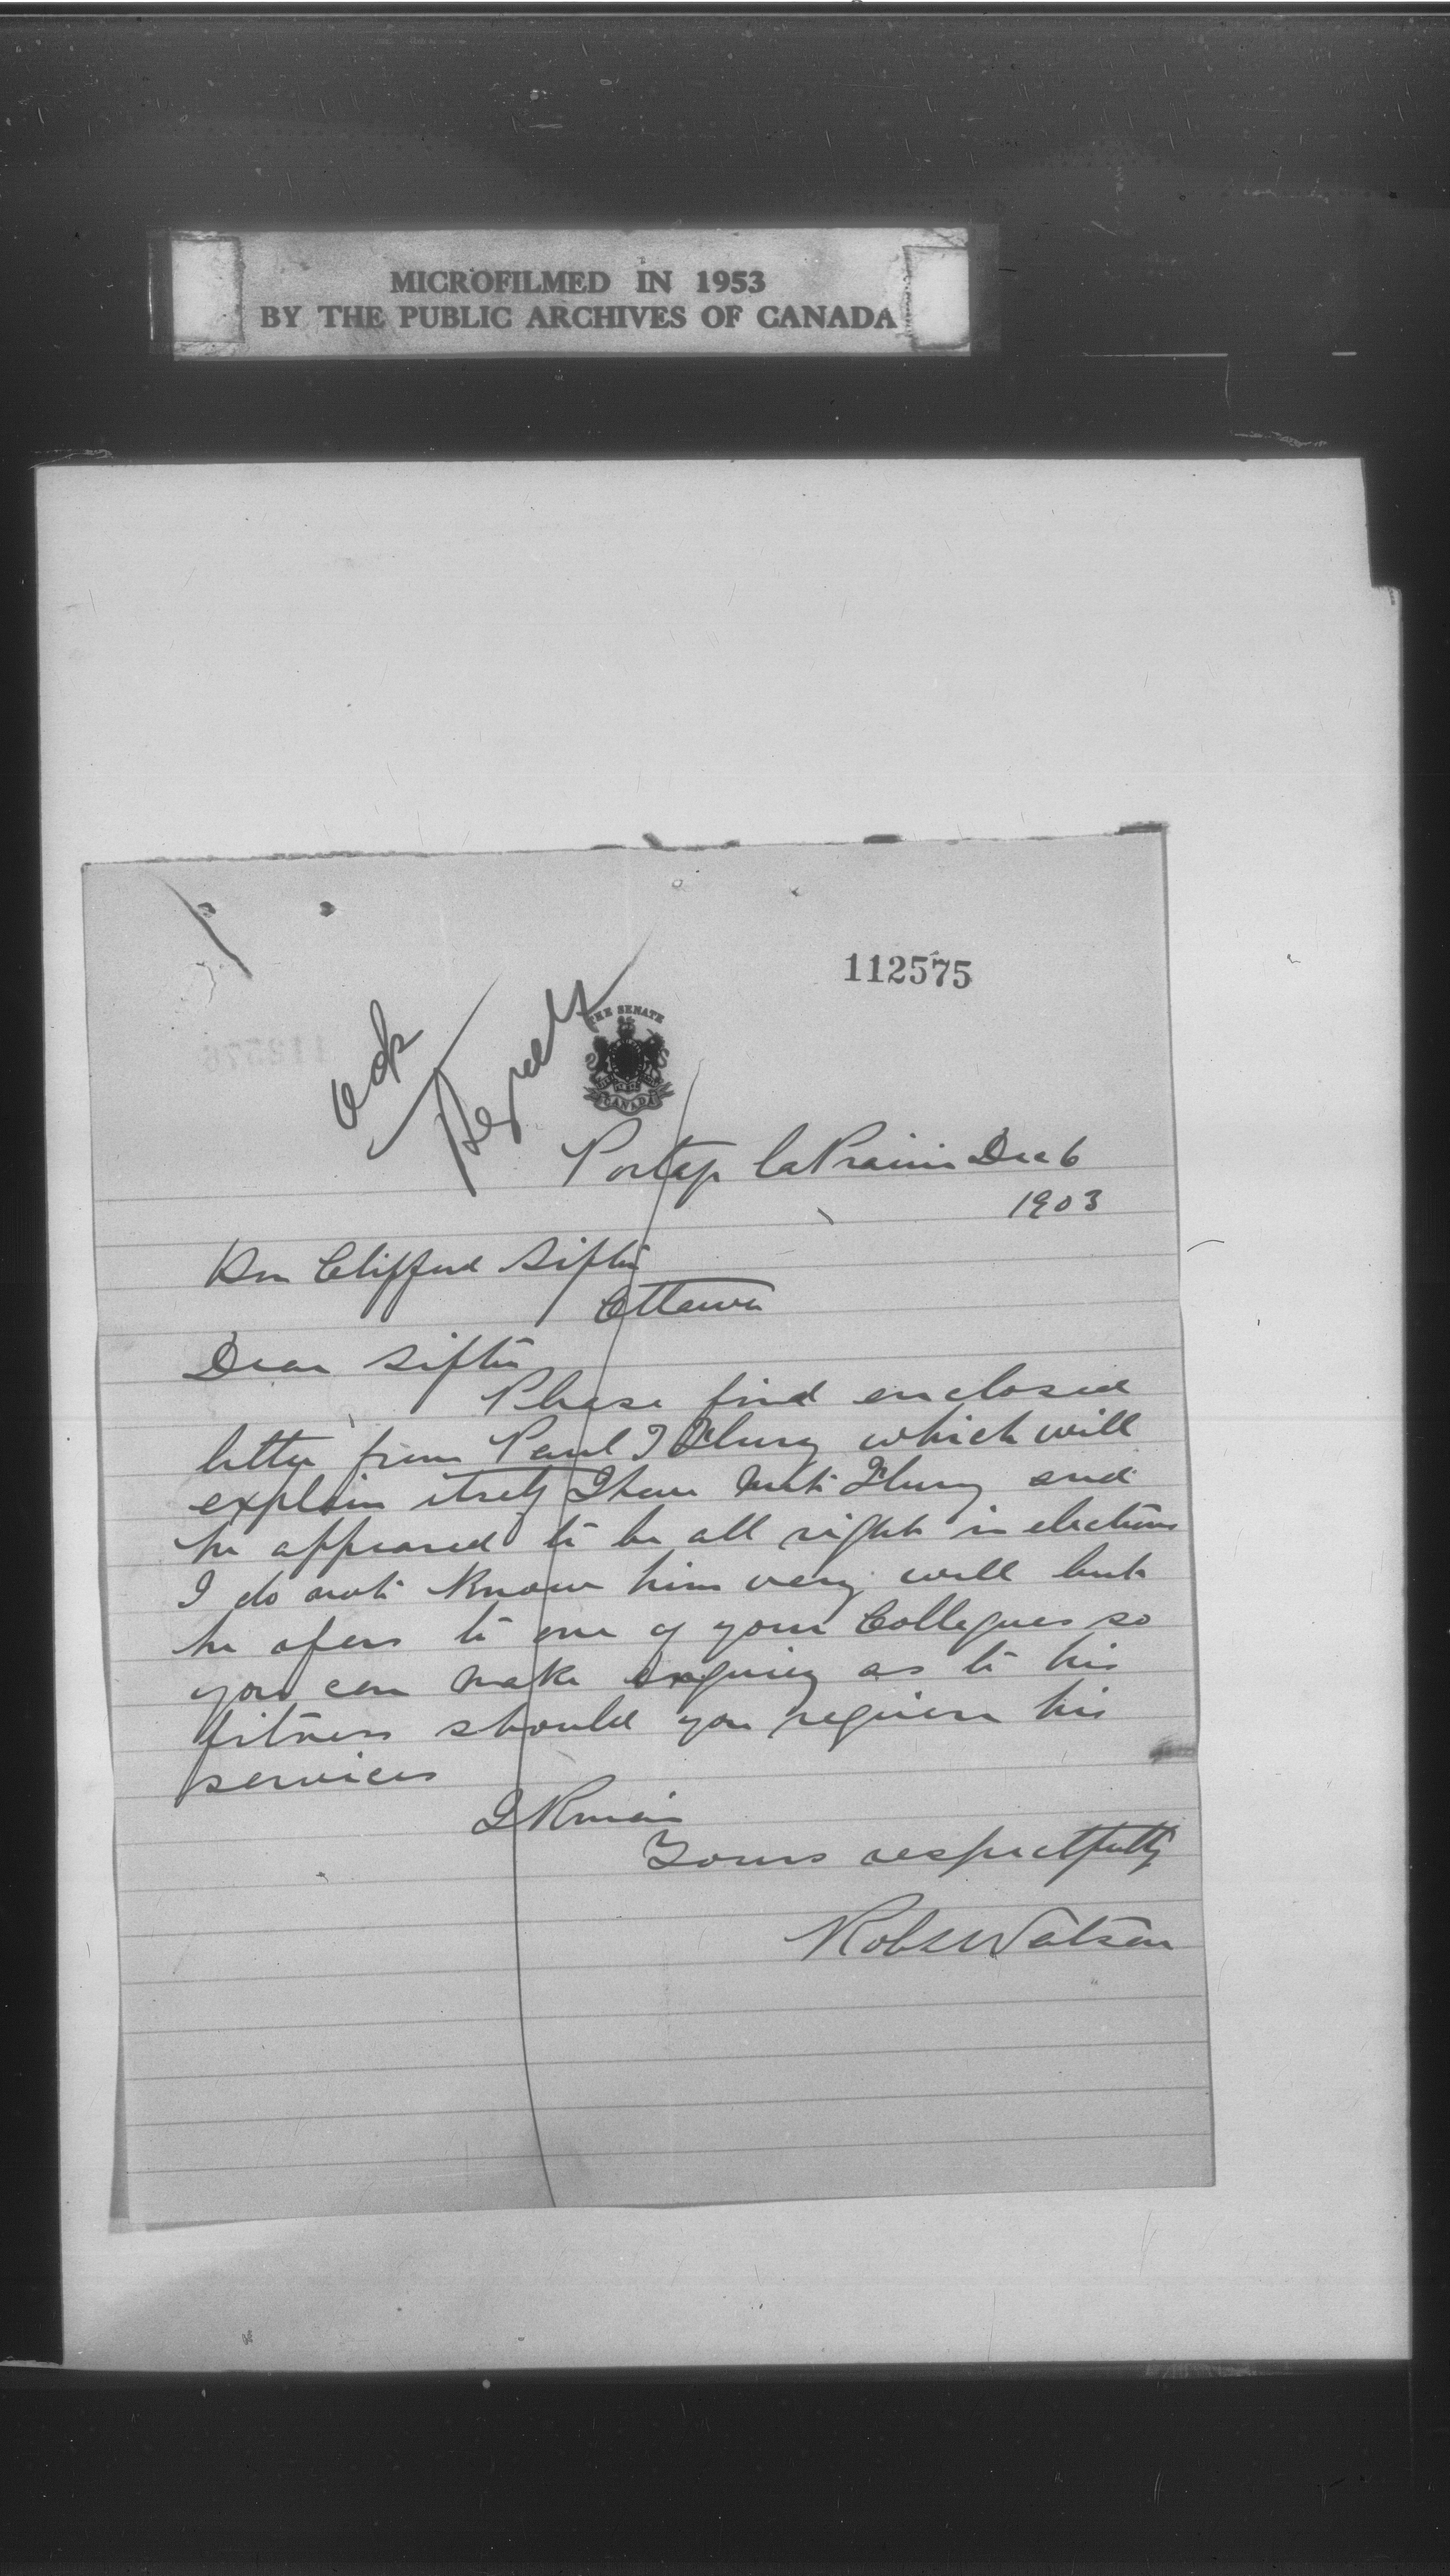 MICROFILMED IN 1953
BY THE PUBLIC ARCHIVES OF CANADA
112575
ack
THE SENATE
CANADA
Portage la Prairie Dec 6
1903
Hon Clifford Sifton
Ottawa
Dear Sifton
Please find enclosed
letter from Paul which will
explain itself I have met and
he appeared to be all right in elections
I do not know him very well but
he refers to one of your Collegues so
you can make enquiry as to his
fitness should you require his
services
I Remain
Yours respectfully
Robt Watson